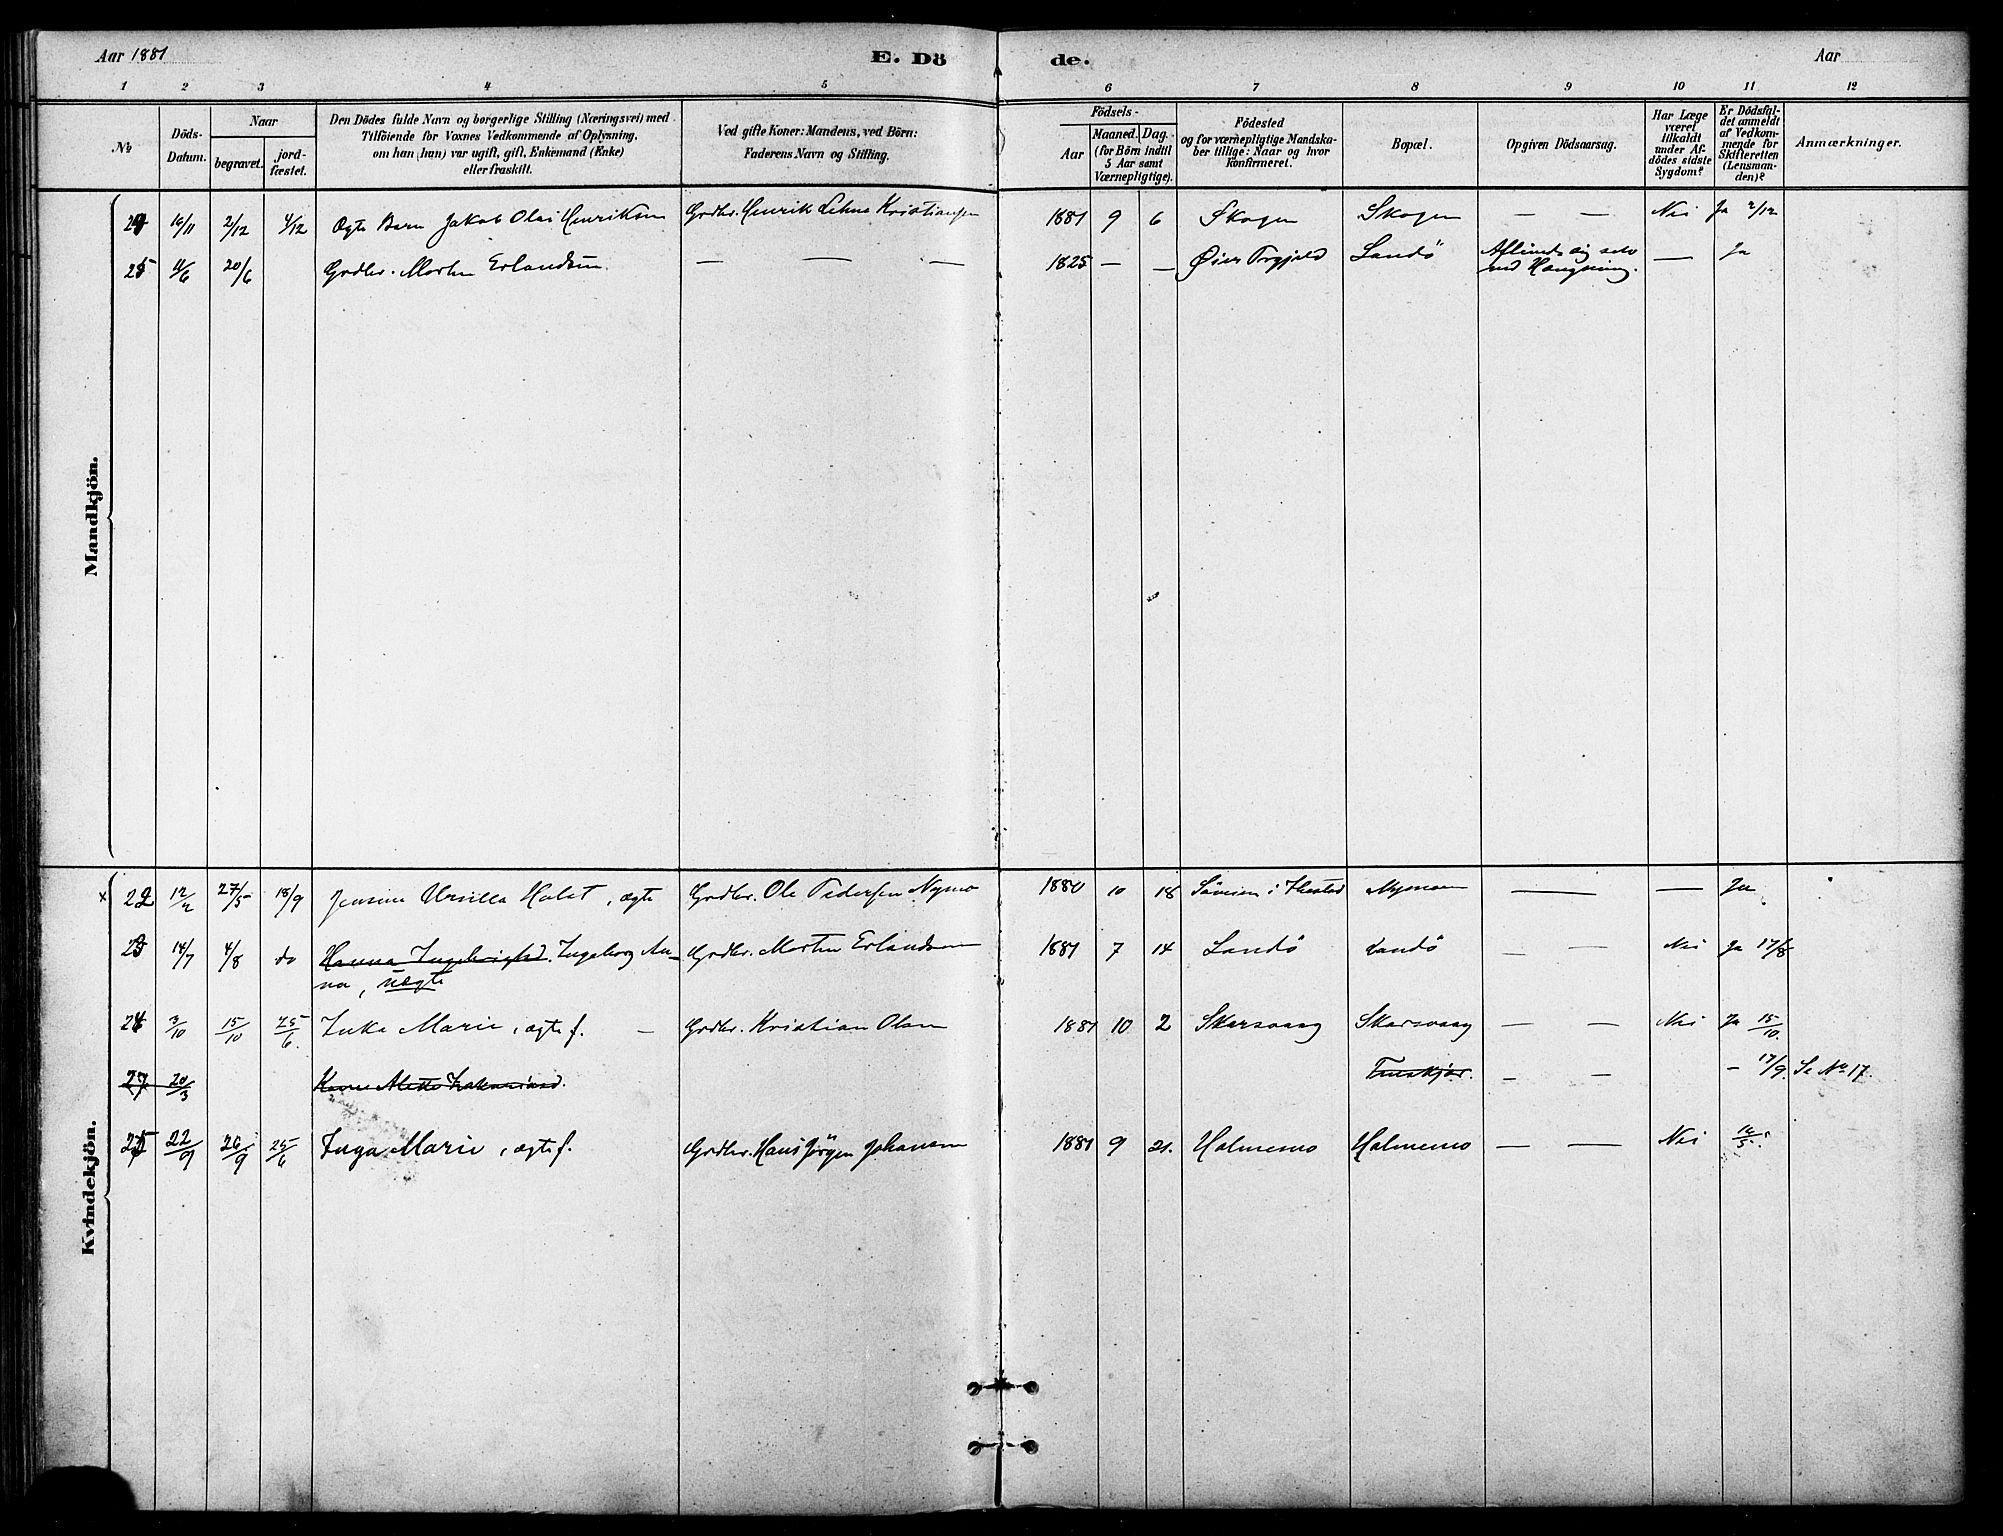 Aar 1881
E. Dö
de.
Aar
1 2 3 4 5 6 7 8 9 10 11 12
№
Döds-
Datum.
Naar
begravet.
jord-
fæstet.
Den Dödes fulde Navn og borgerlige Stilling (Næringsvei) med
Tilföiende for Voxnes Vedkommende af Oplysning,
om han (hun) var ugift, gift, Enkemand (Enke)
eller fraskilt.
Ved gifte Koner: Mandens, ved Börn:
Faderens Navn og Stilling.
Födsels-
Aar
Maaned. Dag.
(for Börn indtil
5 Aar samt
Værnepligtige).
Födested
og for værnepligtige Mandska-
ber tillige: Naar og hvor
konfirmeret.
Bopæl.
Opgiven Dödsaarsag.
Har Læge
været
tilkaldt
under Af-
dödes sidste
Sygdom?
Er Dödsfal-
det anmeldt
af Vedkom-
mende for
Skifteretten
(Lensman-
den)?
Anmærkninger.
Mandkjön.
24 16/11 2/12 4/12 Ægte Barn Jakob Olai Henriksen Grdbr. Henrik Lehne Kristiansen 1881 9 6 Skogen Skogen — — Nei Ja 2/12
25 4/6 20/6 Grdbr. Morten Erlandsen — — — 1825 — — Öier Landö Aflivede sig selv
ved Hængning. — Ja
Kvindekjön.
× 22 12/4 27/5 18/9 Jensine Ursilla Holst, ægte Grdbr. Ole Pedersen Nymo 1880 10 18 i Nymoen — — Ja
23 14/7 4/8 do Hanna Ingebrigtsd. Ingeborg An-
na, uægte Grdbr. Morten Erlandsen 1881 7 14 Landö Landö — — Nei Ja 17/8
24 3/10 15/10 25/6 Inka Marie, ægte f. — Grdbr. Kristian Olsen 1881 10 2 Skarsvaag Skarsvaag — — Nei Ja 15/10.
27 20/3 Karen Mette Zakariasd. — — – 17/9. Se No 17.
25 22/9 26/9 25/6 Inga Marie, ægte f. Grdbr. Hans Jörgen Johansen 1881 9 21. Holmemo Holmemo — — Nei